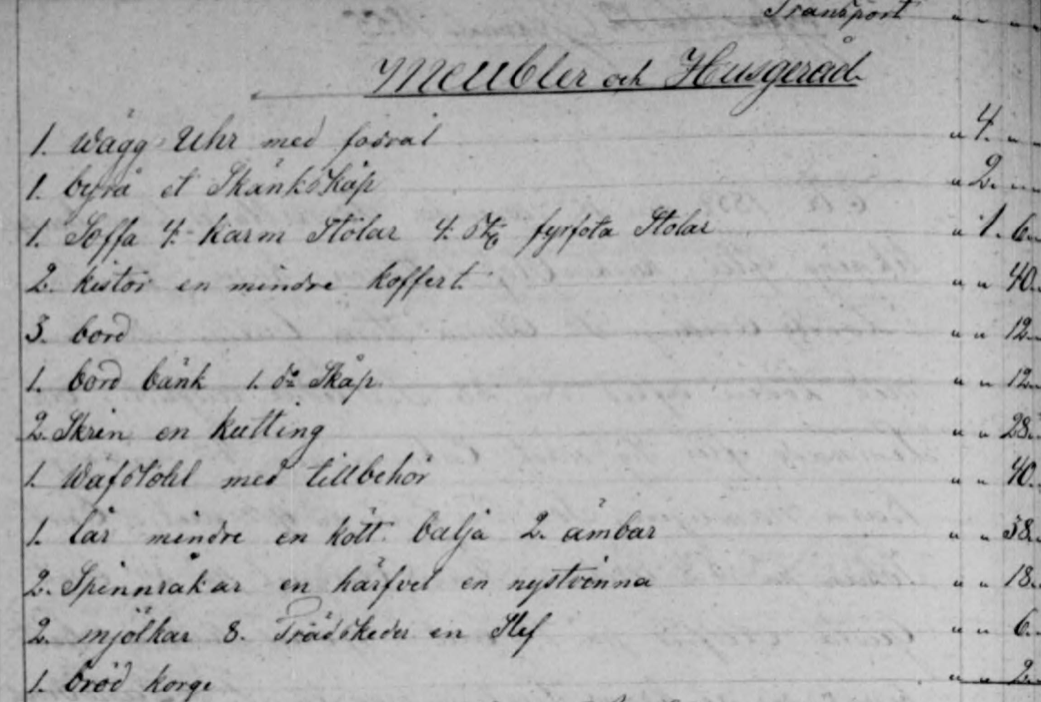 Transport " " "
Meubler och Husgeråd
1. Wägg Uhr med fodral " 4. "
1. byrå et Skänkskåp " 2. "
1. Soffa 4: karm Stolar 4. st. fyrfota Stolar " 1. 6.
2. kistor en mindre koffert " " 40.
3. bord " " 12.
1. bord bänk 1. do Skåp " " 12.
2. Skrin en kutting " " 28.
1. Wafstohl med tillbehör " " 40.
1. lår mindre en kött balja 2. ämbar " " 38.
2. Spinnråkar en härfvel en nystvinna " " 18.
2. mjölkar 8. Trädskeder en Slef " " 6.
1. bröd korge " " 2.